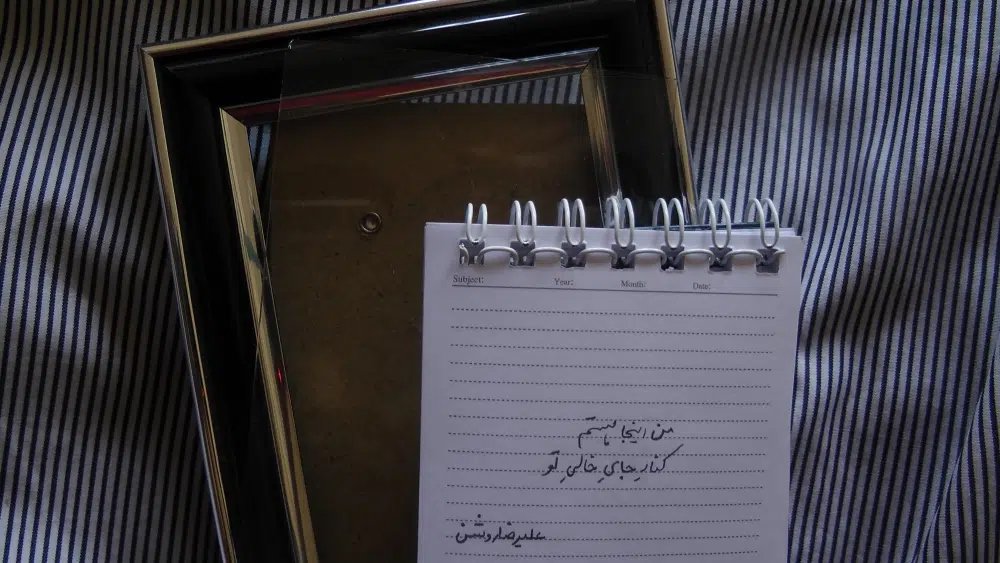 Subject: Year: Month: Date:
من اینجا هستم
کنارِ جایِ خالیِ تو
علیرضا روشن